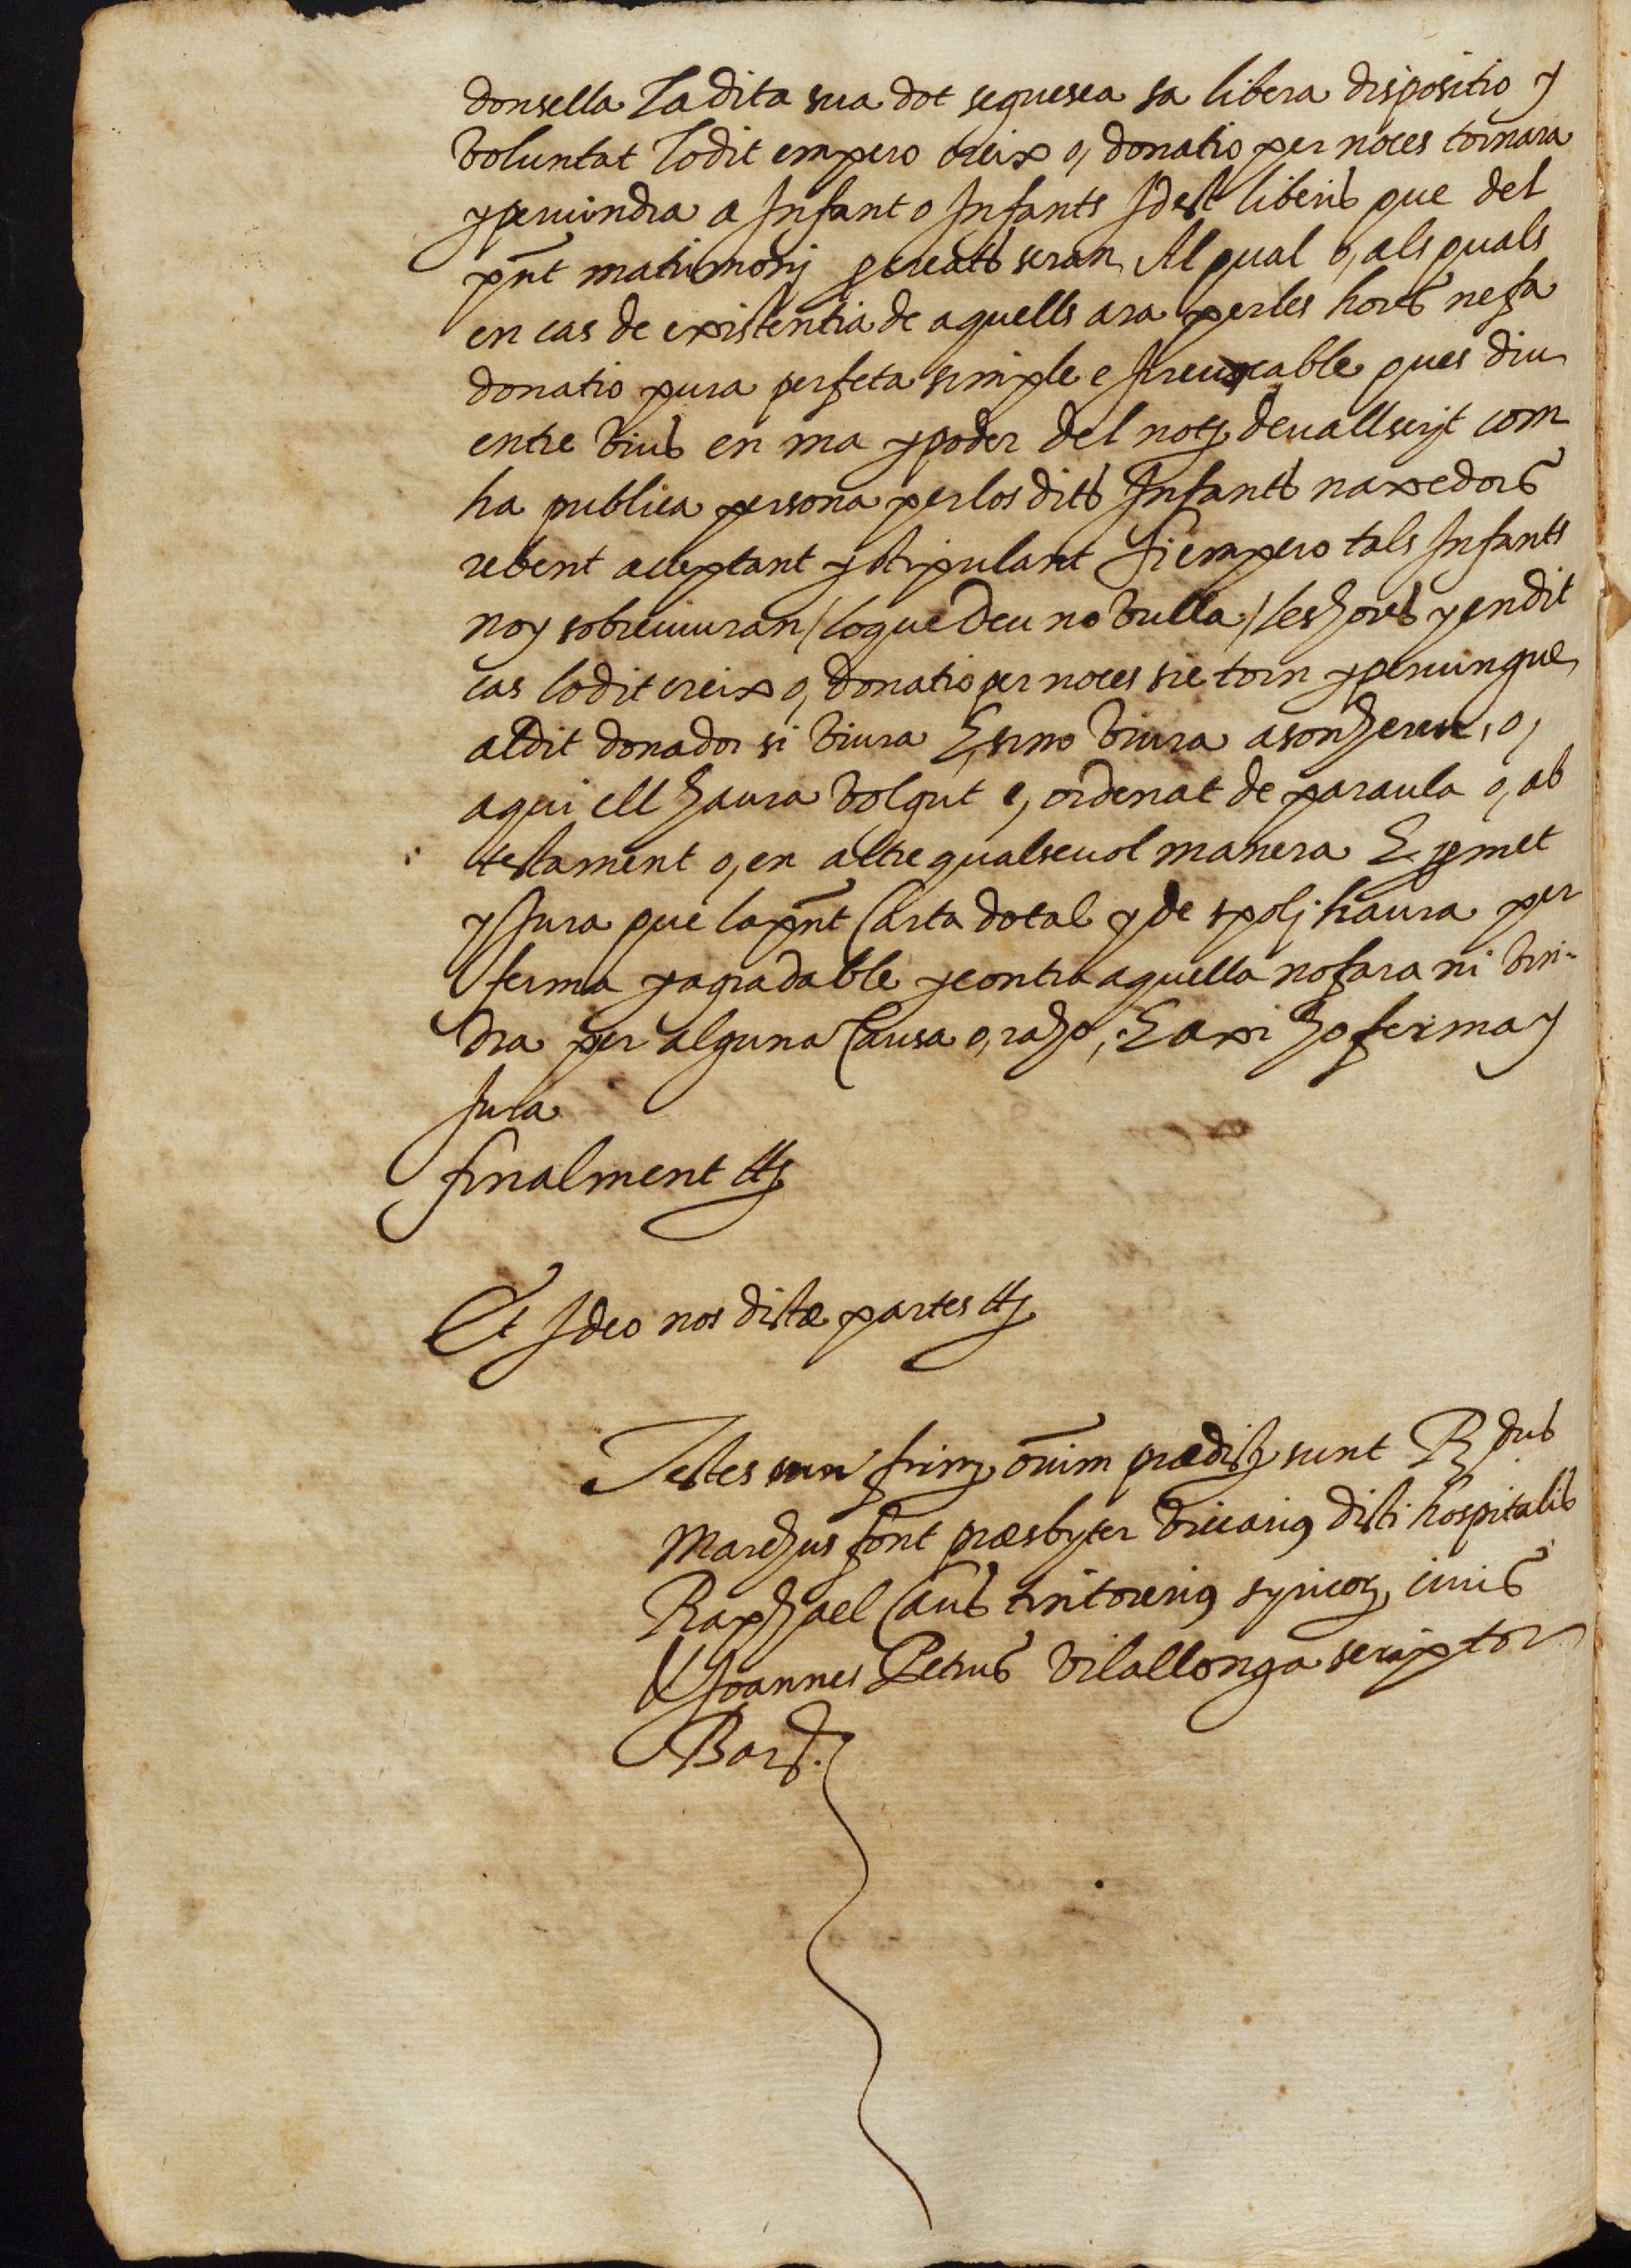 donsella La dita sua dot seguesca sa libera dispositio y
voluntat Lo dit empero creix o, donatio per noces tornara
y pervindra a Infant o Infants Idest liberis que del
pñt matrimonj procreats seran, Al qual o, als quals
en cas de existentia de aquells ara per les hores ne fa
donatio pura perfeta simple e Irrevocable ques diu
entre vius en ma y poder del notj devallscrit com
ha publica persona per los dits Infants naxedors
rebent acceptant y stipulant Si empero tals Infants
noy sobreviuran (lo que Deu no vulla) les hores y en dit
cas lo dit creix o, donatio per noces sie torn y pervingue
al dit donador si viura E, sino viura a son hereu, o,
a qui ell haura volgut e, ordenat de paraula o, ab
testament o, en altre qualsevol manera E promet
y Jura que la pñt Carta dotal y de spolj haura per
ferma y agradable y contra aquella no fara ni vin-
dra per alguna Causa o, raho, E axi ho ferma y
Jura
finalment ettz
Et Ideo nos dictæ partes ettz
Testes firmæ oïm prædictz sunt Rdus
Marchus font præsbyter vicarius dicti hospitalis
Raphael Caus tintorerius syricoz, civis
& Joannes Petrus vilallonga scriptor
Barz.